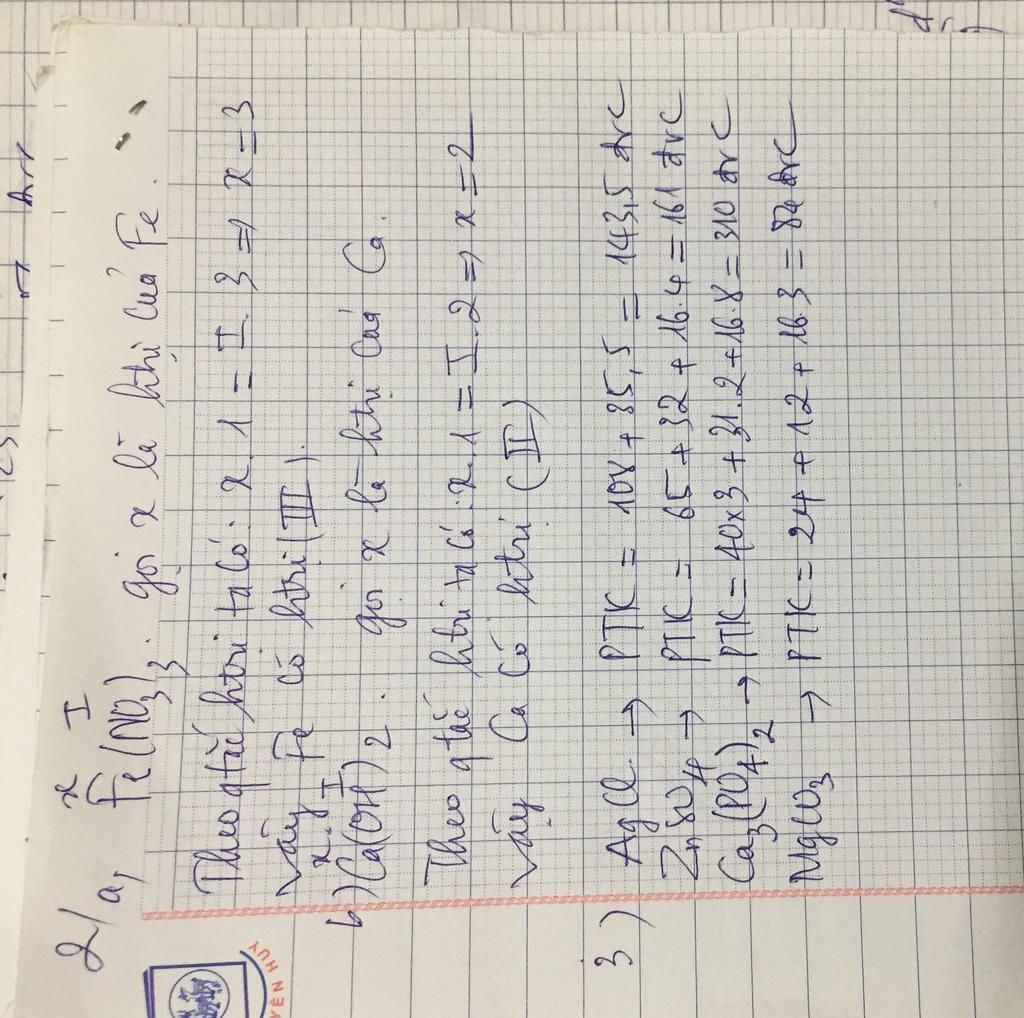 2/ a, Fe(NO₃)₃. gọi x là htrị của Fe.
x I
Theo qtắc htrị ta có: x.1 = I.3 => x = 3
Vậy Fe có htrị (III).
x I
b) Ca(OH)₂. gọi x là htrị của Ca.
Theo qtắc htrị ta có: x.1 = I.2 => x = 2
Vậy Ca có htrị (II)
3) AgCl → PTK = 108 + 35,5 = 143,5 đvC
ZnSO₄ → PTK = 65 + 32 + 16.4 = 161 đvC
Ca₃(PO₄)₂ → PTK = 40x3 + 31.2 + 16.8 = 310 đvC
MgCO₃ → PTK = 24 + 12 + 16.3 = 84 đvC
YÊN HUY